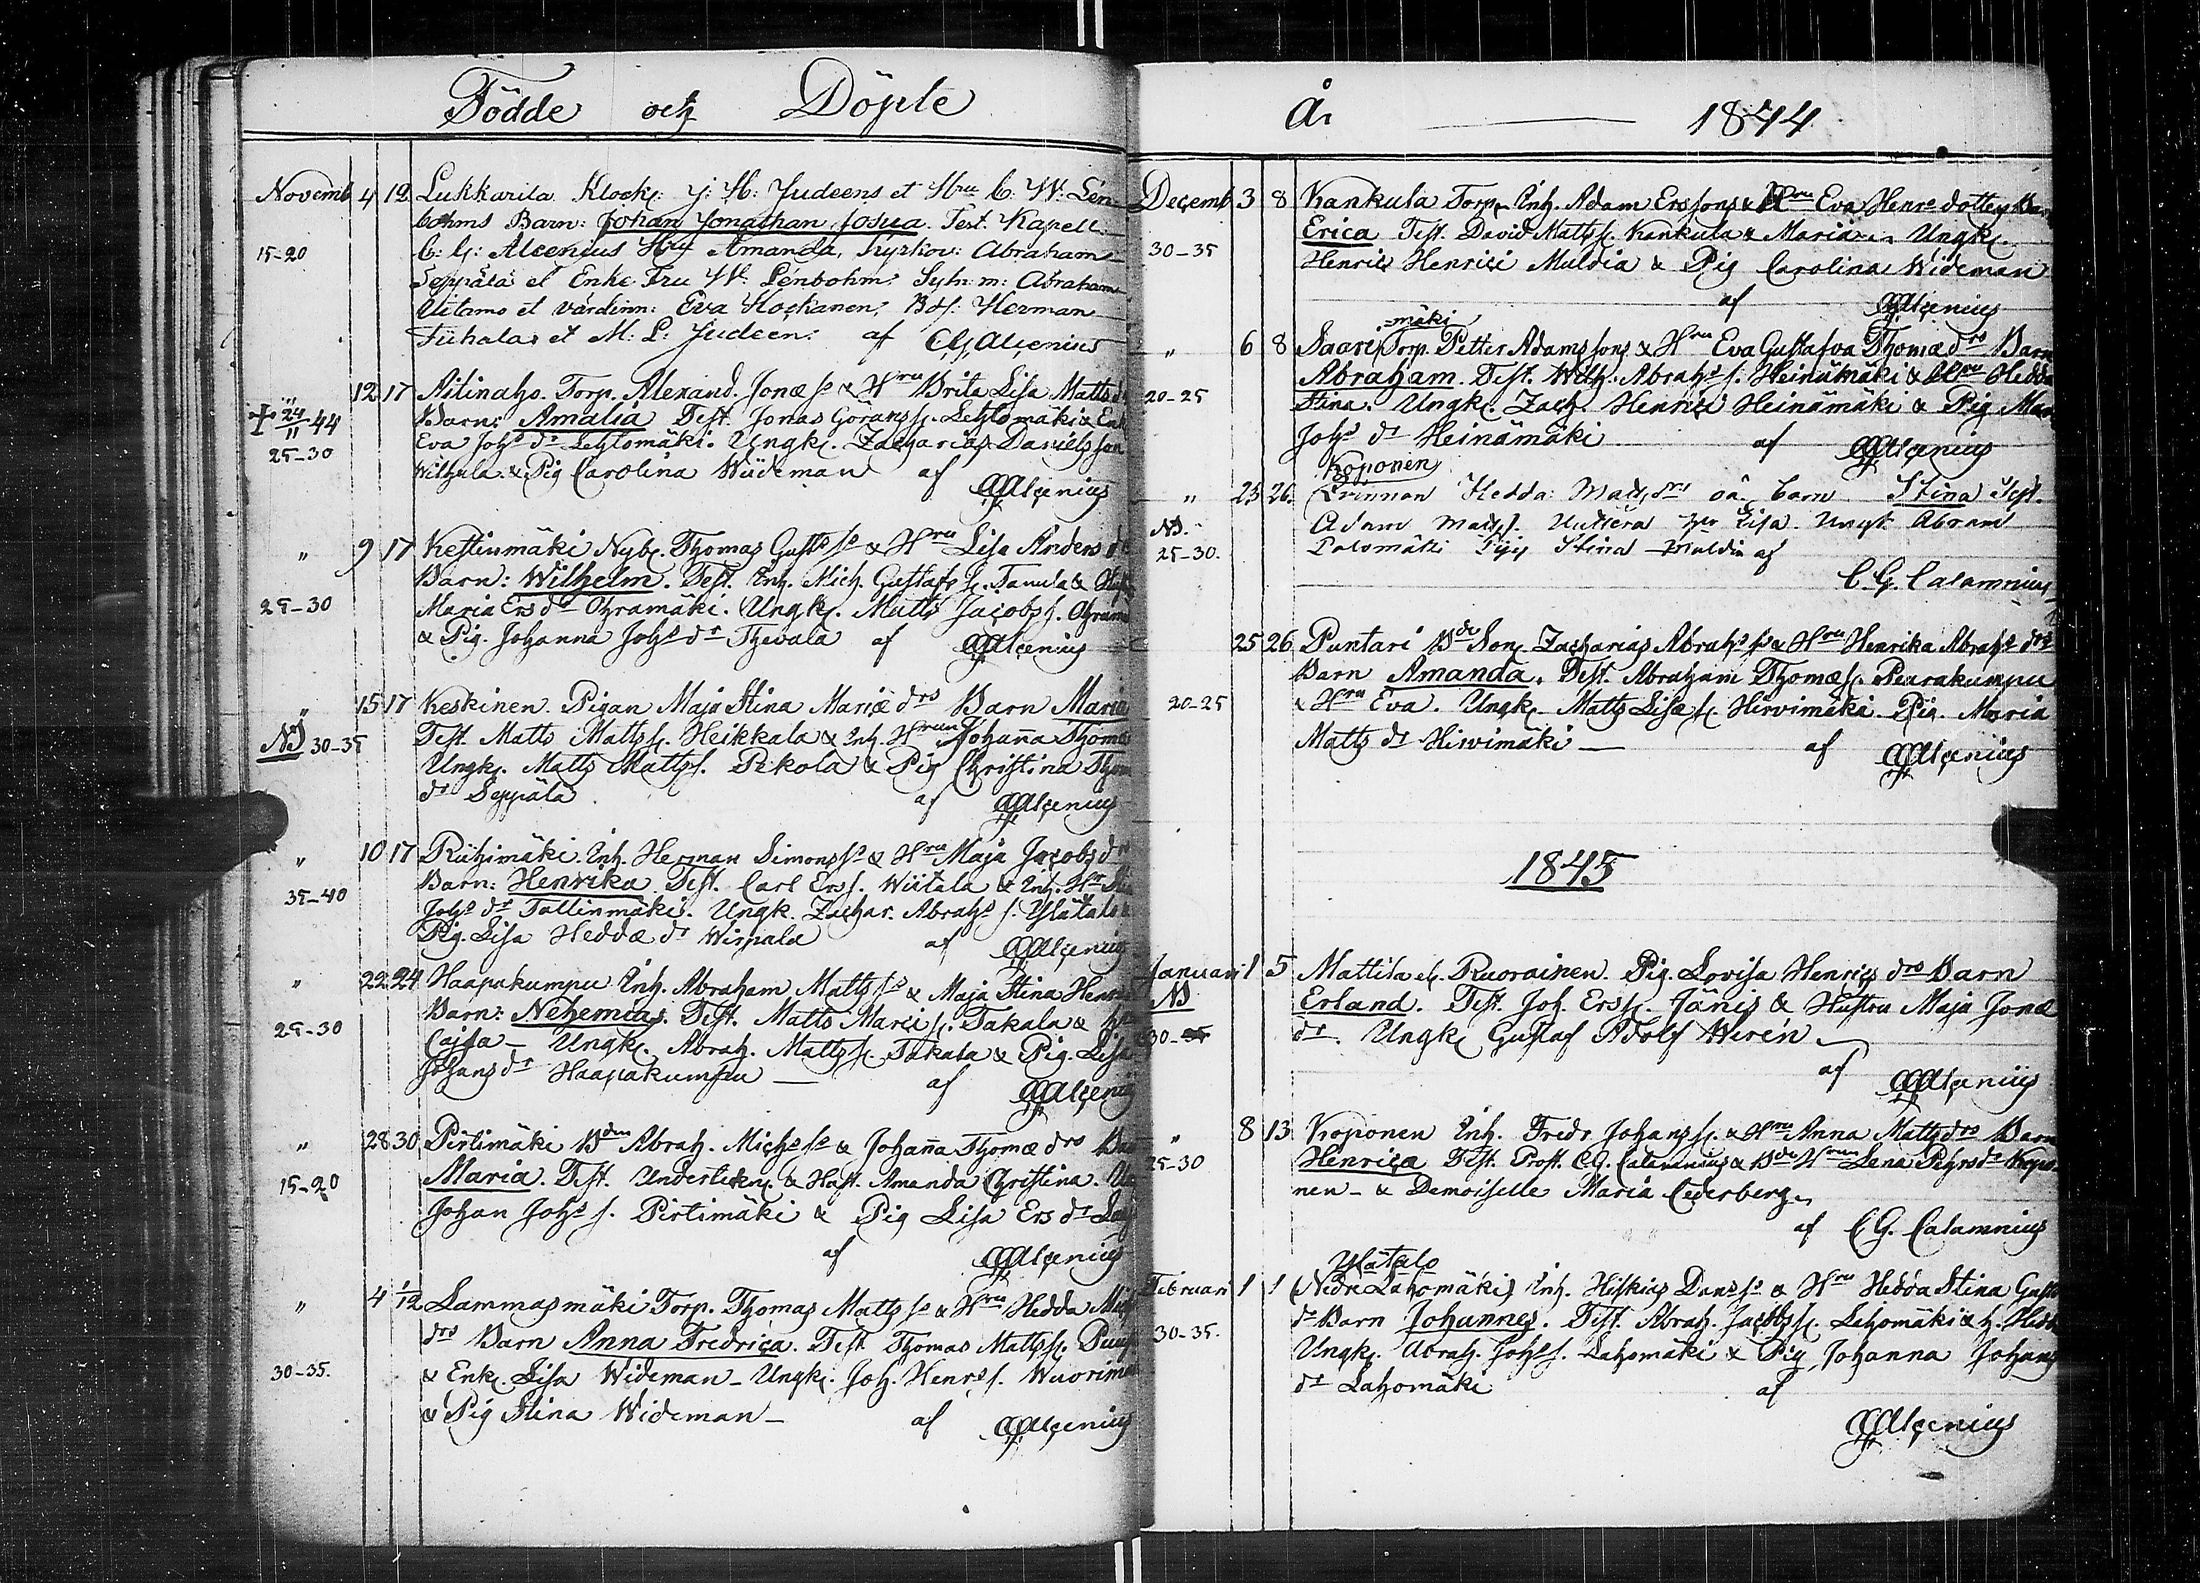 Födde och Döpte
Novemb 4 12 Lukkarila Klock: J: H: Judeens et Hru C: W: Len-
bohms Barn: Johan Jonathan Josua. Test. Kapell:
15-20 C: G: Alcenius Hru Amanda, Kyrkov: Abraham
Seppälä et Enke Fru W: Lénbohm: Sytn: m: Abraham
Uitamo et värdinn: Eva Hockanen; Bds: Herman
Tiihala et M: L: Judeen: af CGAlcenius
" 12 17 Aitinaho Torp. Alexand. Jonæ so & Hru Brita Lisa Matts d
+ 24/11 44 Barn: Amalia Test. Jonas Göranss. Lehtomäki & Enk
25-30 Eva Johs dr Lehtomäki. Ungk. Zacharias Danielsson
Wilhula & Pig Carolina Wiideman af
GGAlcenius
" 9 17 Kestinmäki Nyb. Thomas Gusts so & Hru Lisa Anders d
Barn: Wilhelm. Test. Inh. Mich. Gustafs s. Tanula &
25-30 Maria Ers dr Ohramäki. Ungk. Matts Jacobs s.
& Pig. Johanna Johs dr Thevala af GGAlcenius
" 15 17 Keskinen. Pigan Maja Stina Mariæ drs Barn Maria
Test. Matts Matts s. Heikkala & Inh. Hrun Johanna Thomæ
NB 30-35 Ungk. Matts Matts s. Pekola & Pig Christina Thom
dr Seppälä af GGAlcenius
" 10 17 Riihimäki. Inh. Herman Simons so & Hru Maja Jacobs dr
Barn: Henrika Test. Carl Ers s. Wiitala & Inh. Hr
35-40 Johs dr Tallinmäki. Ungk. Zachar. Abrahs s. Ylätalo &
Pig. Lisa Heddæ dr Wirpala af GGAlcenius
" 22 24 Haapakumpu Inh. Abraham Matts so & Maja Stina Henr
Barn: Nehemias. Test. Matts Marci s. Takala &
25-30 Cajsa — Ungk. Abrah. Matts s. Takala & Pig. Lisa
Johans dr Haapakumpu — af GGAlcenius
" 28 30 Pirttimäki Bden Abrah. Michs so & Johanna Thomæ drs
Maria. Test. Underteckn. & Hust. Amanda Christina.
15-20 Johan Johs s. Pirtimäki & Pig Lisa Ers dr
af GGAlcenius
" 4 1/12 Lammasmäki Torp. Thomas Matts so & Hru Hedda
drs Barn Anna Fredrica. Test Thomas Matts s.
30-35. & Enk. Lisa Wideman — Ungk. Joh. Henrs s. Wuorimaa
& Pig Stina Wideman — af GGAlcenius
År 1844
Decemb 3 8 Kankula Torp. Inh. Adam Erssons & Hru Eva Henrs dotters
Erica Test. David Matts s. Kankula & Maria — Ungk.
30-35 Henric Henrici Muldia & Pig Carolina Wideman
af GGAlcenius
-mäki
" 6 8 Saari Torp. Petter Adams sons & Hru Eva Gustafva Thomæ drs Barn
Abraham. Test. Wilh. Abrahs s. Heinämäki & Hru Hedda
20-25 Stina. Ungk. Zach. Henrici Heinämäki & Pig Mar
Johs dr Heinämäki af GGAlcenius
Koponen
" 23 26. Qvinnan Hedda Mads drs oä. barn Stina Test.
NB. Adam Mads s. Uuttera Hr Lisa. Ungk Abram
25-30. Palomäki Pig Stina Muldia af
C. G. Calamnius
25 26 Puntari Bde Son Zacharias Abrahs so & Hru Henrika Abrahs drs
Barn Amanda. Test. Abraham Thomæ s. Peurakumpu
20-25 & Hru Eva. Ungk. Matts Lisæ s. Hirvimäki. Pig. Maria
Matts dr Hirvimäki — af GGAlcenius
1845
Januari 1 5 Mattila el. Ruorainen. Pig. Lovisa Henrics drs Barn
NB Erland. Test. Joh. Ers s. Jänis & Hustru Maja Jonæ
30-35 dr. Ungk Gustaf Adolf Werén
af GGAlcenius
" 8 13 Koponen Inh. Fredr Johans s. & Hru Anna Matts drs Barn
25-30 Henrica Test. Prost. C.G. Calamnius & Bde Hrun Lena Pehrs dr Kopo-
nen — & Demoiselle Maria Cederberg
af C G. Calamnius
Ylätalo
Februari 1 1 (Nedr. Lahomäki) Inh. Hiskias Dans so & Hru Hedda Stina Gust
dr Barn Johannes. Test. Abrah. Jacobs s. Lahomäki & h. Hedda
30-35. Ungk. Abrah. Johs s. Lahomäki & Pig Johanna Johans
dr Lahomäki af
GGAlcenius